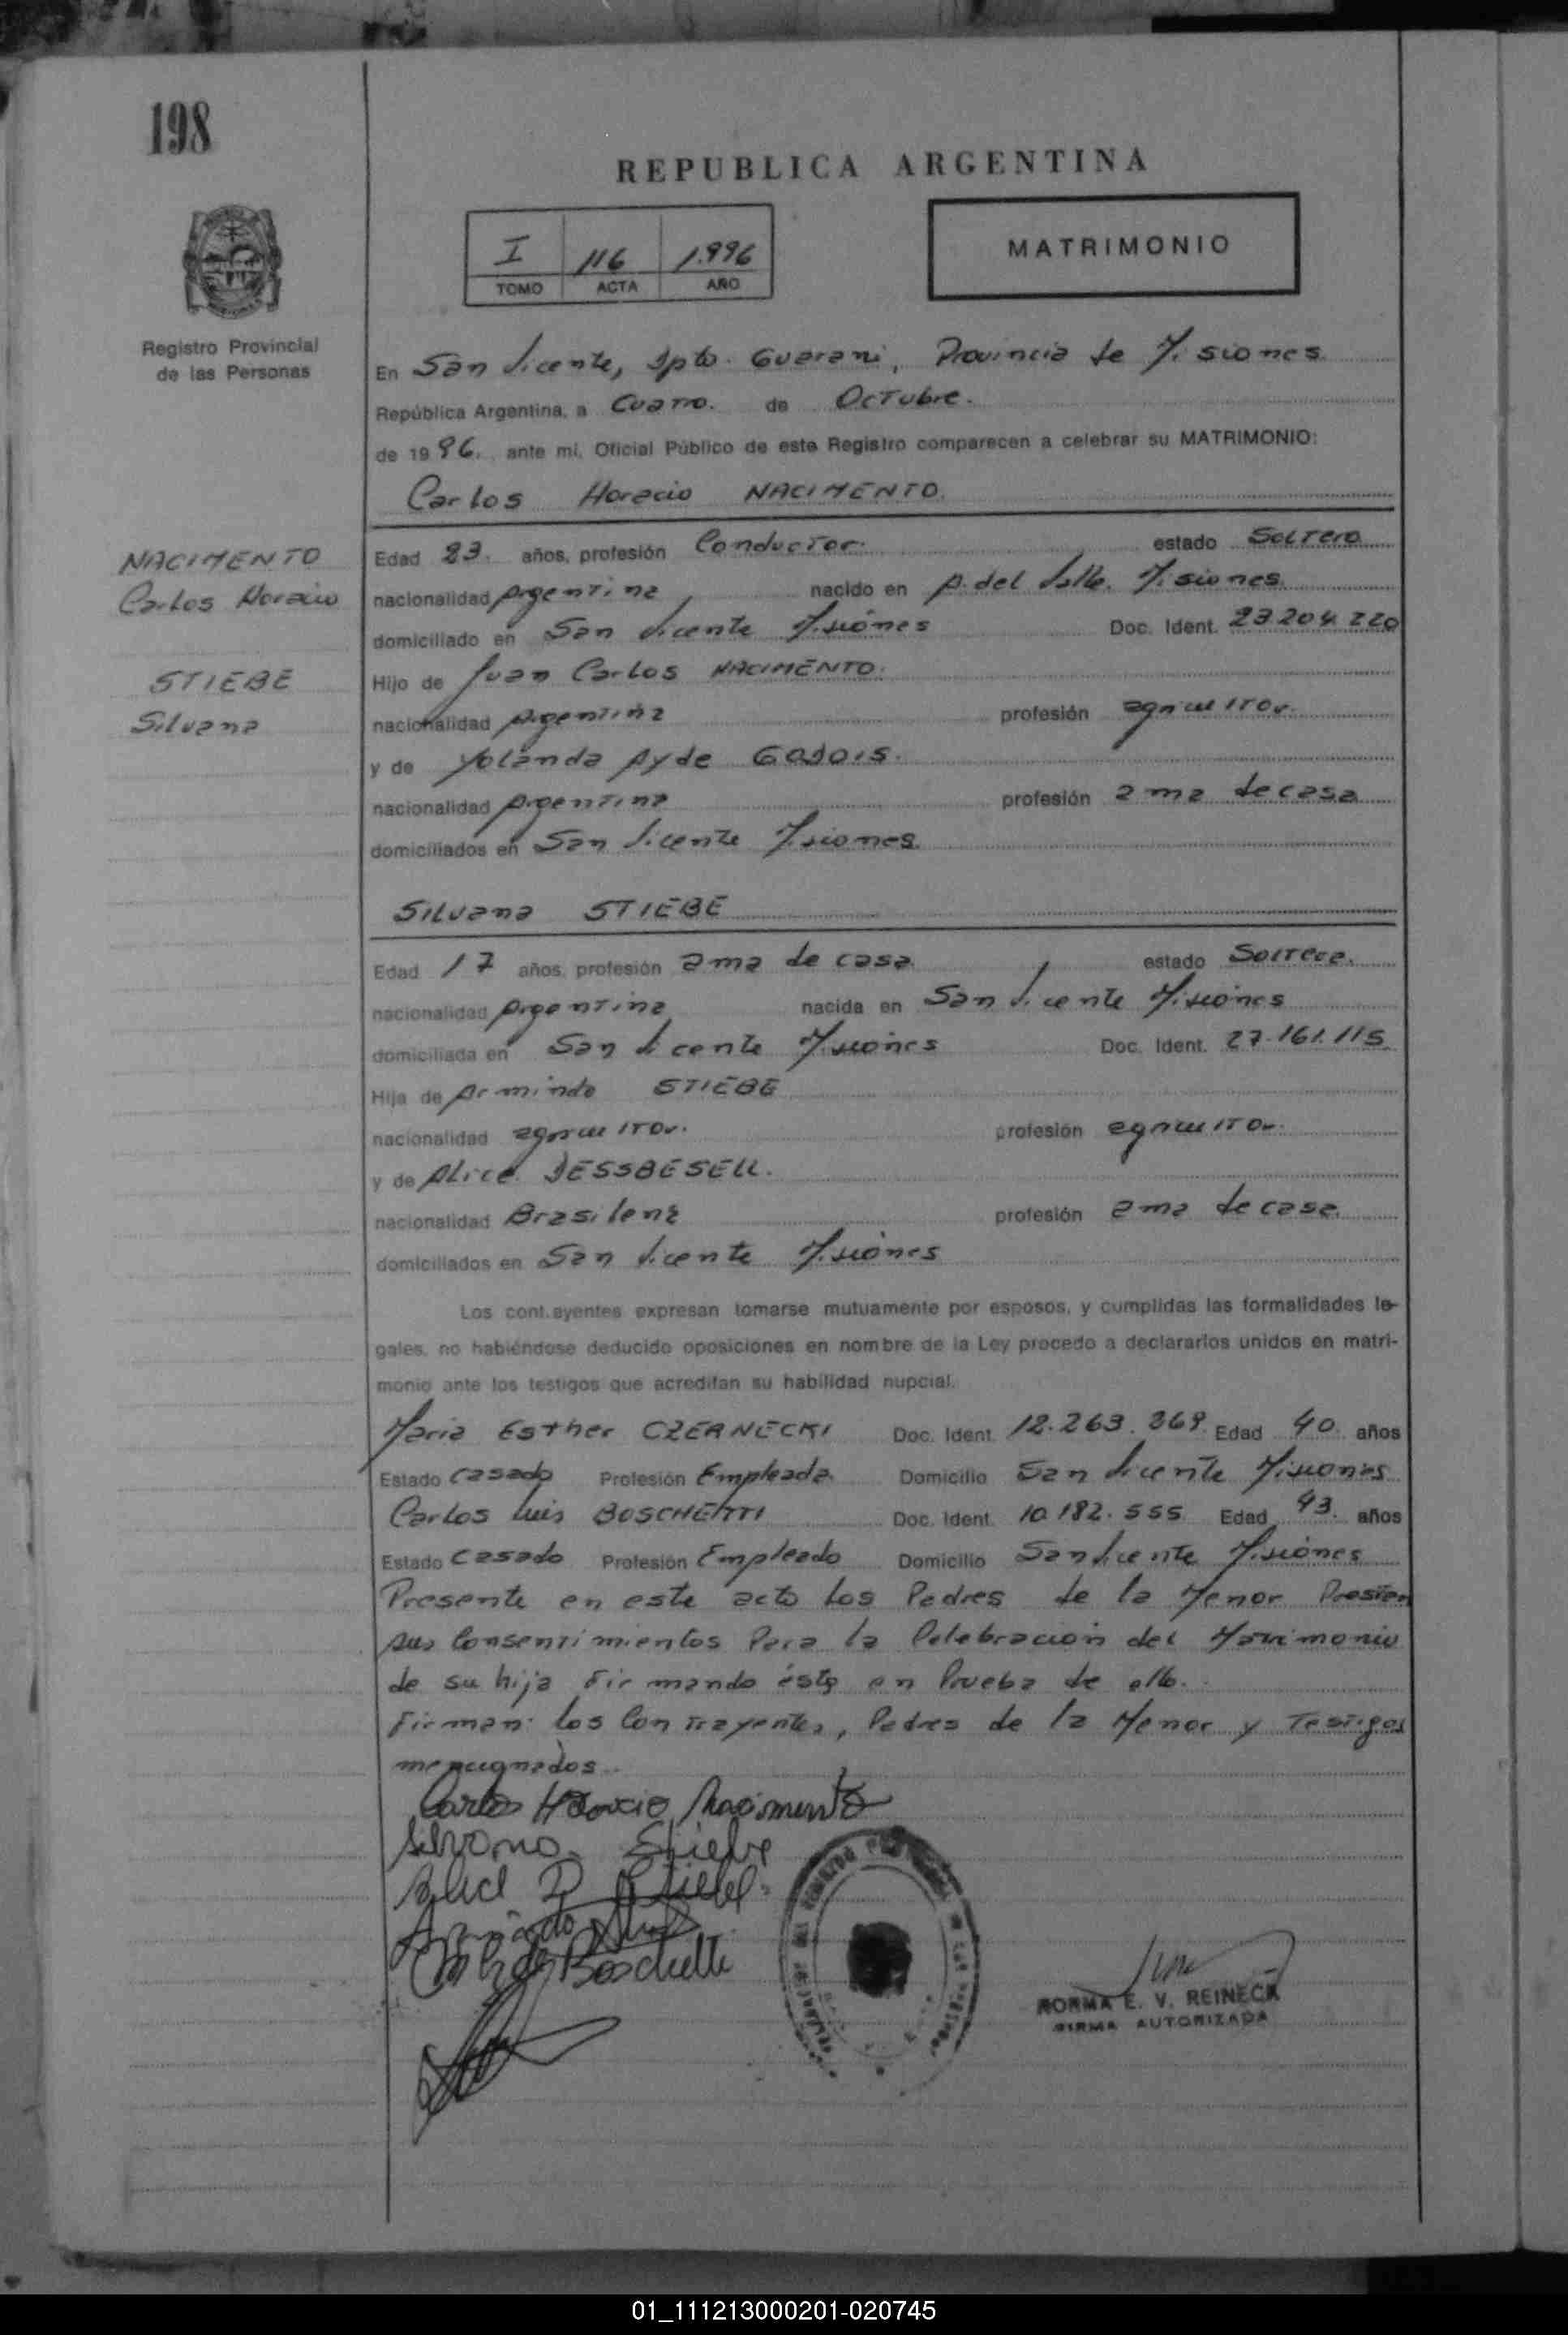 198
REPUBLICA ARGENTINA
I 116 1.996
TOMO ACTA AÑO
MATRIMONIO
Registro Provincial
de las Personas
En San Vicente, Dpto. Guarani, Provincia de Misiones
República Argentina, a Cuatro. de Octubre.
de 1996., ante mi, Oficial Público de este Registro comparecen a celebrar su MATRIMONIO:
Carlos Horacio NACIMENTO.
NACIMENTO
Carlos Horacio
STIEBE
Silvana
Edad 23. años, profesión Conductor. estado Soltero
nacionalidad Argentina nacido en A. del Valle. Misiones.
domiciliado en San Vicente Misiones Doc. Ident. 23.204.220
Hijo de Juan Carlos NACIMENTO.
nacionalidad Argentina profesión agricultor.
y de Yolanda Ayde GODOIS.
nacionalidad Argentina profesión ama de casa
domiciliados en San Vicente Misiones.
Silvana STIEBE
Edad 17 años, profesión ama de casa. estado Soltera.
nacionalidad Argentina nacida en San Vicente Misiones
domiciliada en San Vicente Misiones Doc. Ident. 27.161.115.
Hija de Armindo STIEBE
nacionalidad agricultor. profesión agricultor.
y de Alice DESSBESELL.
nacionalidad Brasilena profesión ama de casa.
domiciliados en San Vicente Misiones
Los cont.ayentes expresan tomarse mutuamente por esposos, y cumplidas las formalidades le-
gales, no habiéndose deducido oposiciones en nombre de la Ley procedo a declararlos unidos en matri-
monio ante los testigos que acreditan su habilidad nupcial.
Maria Esther CZERNECKI Doc. Ident. 12.263.269. Edad 40 años
Estado Casado Profesión Empleada. Domicilio San Vicente Misiones
Carlos Luis BOSCHETTI Doc. Ident. 10.182.555 Edad 43. años
Estado Casado Profesión Empleado Domicilio San Vicente Misiones
Presente en este acto los Padres de la Menor Prestan
sus Consentimientos Para la Celebracion del Matrimonio
de su hija Firmando ésta en Prueba de ello.
Firman: los Contrayentes, Padres de la Menor y Testigos
mencionados.
Carlos Horacio Nacimento
Silvana Stiebe
Alice D Stiebe
Armindo
de Boschetti
NORMA E. V. REINECK
FIRMA AUTORIZADA
01_111213000201-020745